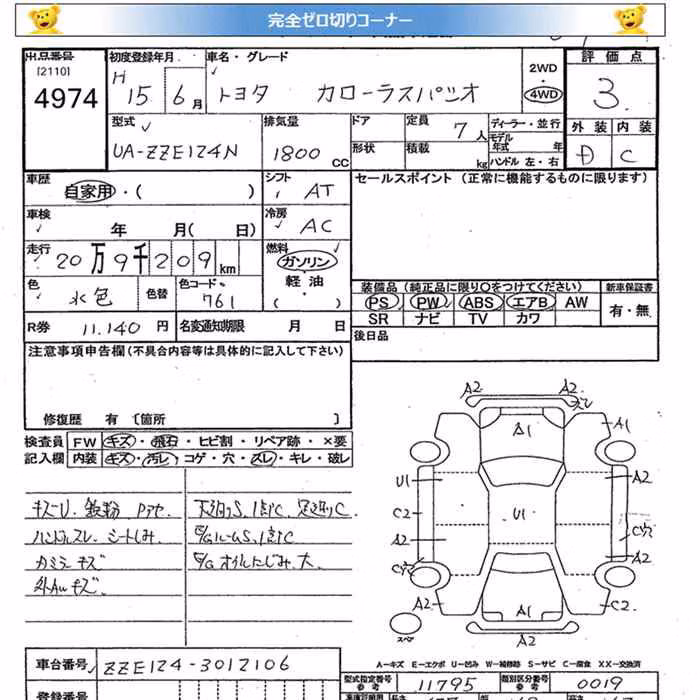 完全ゼロ切りコーナー
出品番号 初度登録年月 車名・グレード 2WD 評価点
[2110] H 15 6月 トヨタ カローラスパシオ ・ 4WD 3
4974
型式 排気量 ドア 定員 7人 ディーラー・並行 外装 内装
UA-ZZE124N 1800cc 形状 積載 kg モデル年式 年 D C
ハンドル 左・右
車歴 自家用・( ) シフト AT セールスポイント (正常に機能するものに限ります)
車検 年 月( 日) 冷房 AC
走行 20万9千209km 燃料 ガソリン・軽油( )
色 水色 色替 色コード 761
装備品(純正品に限り○をつけてください) 新車保証書
PS PW ABS エアB AW 有・無
SR ナビ TV カワ
R券 11,140円 名変通知期限 月 日 後日品
注意事項申告欄(不具合内容等は具体的に記入して下さい)
修復歴 有 〔箇所 〕
検査員 FW キズ・飛石・ヒビ割・リペア跡・×要
記入欄 内装 キズ・汚レ・コゲ・穴・ズレ・キレ・破レ
キズーU. 鉄粉 Pアセ.
ハンドルスレ. シートしみ.
外AWキズ
A2 A2
A1 A1
U1 A2
C2 U1 C穴
A2 A2
C穴
A2 A1 C2
スペア A2
A-キズ E-エクボ U-凹み W-補修跡 S-サビ C-腐食 XX-交換済
車台番号 ZZE124-3012106
型式指定番号 参考 11795 類別区分番号 参考 0019
登録番号